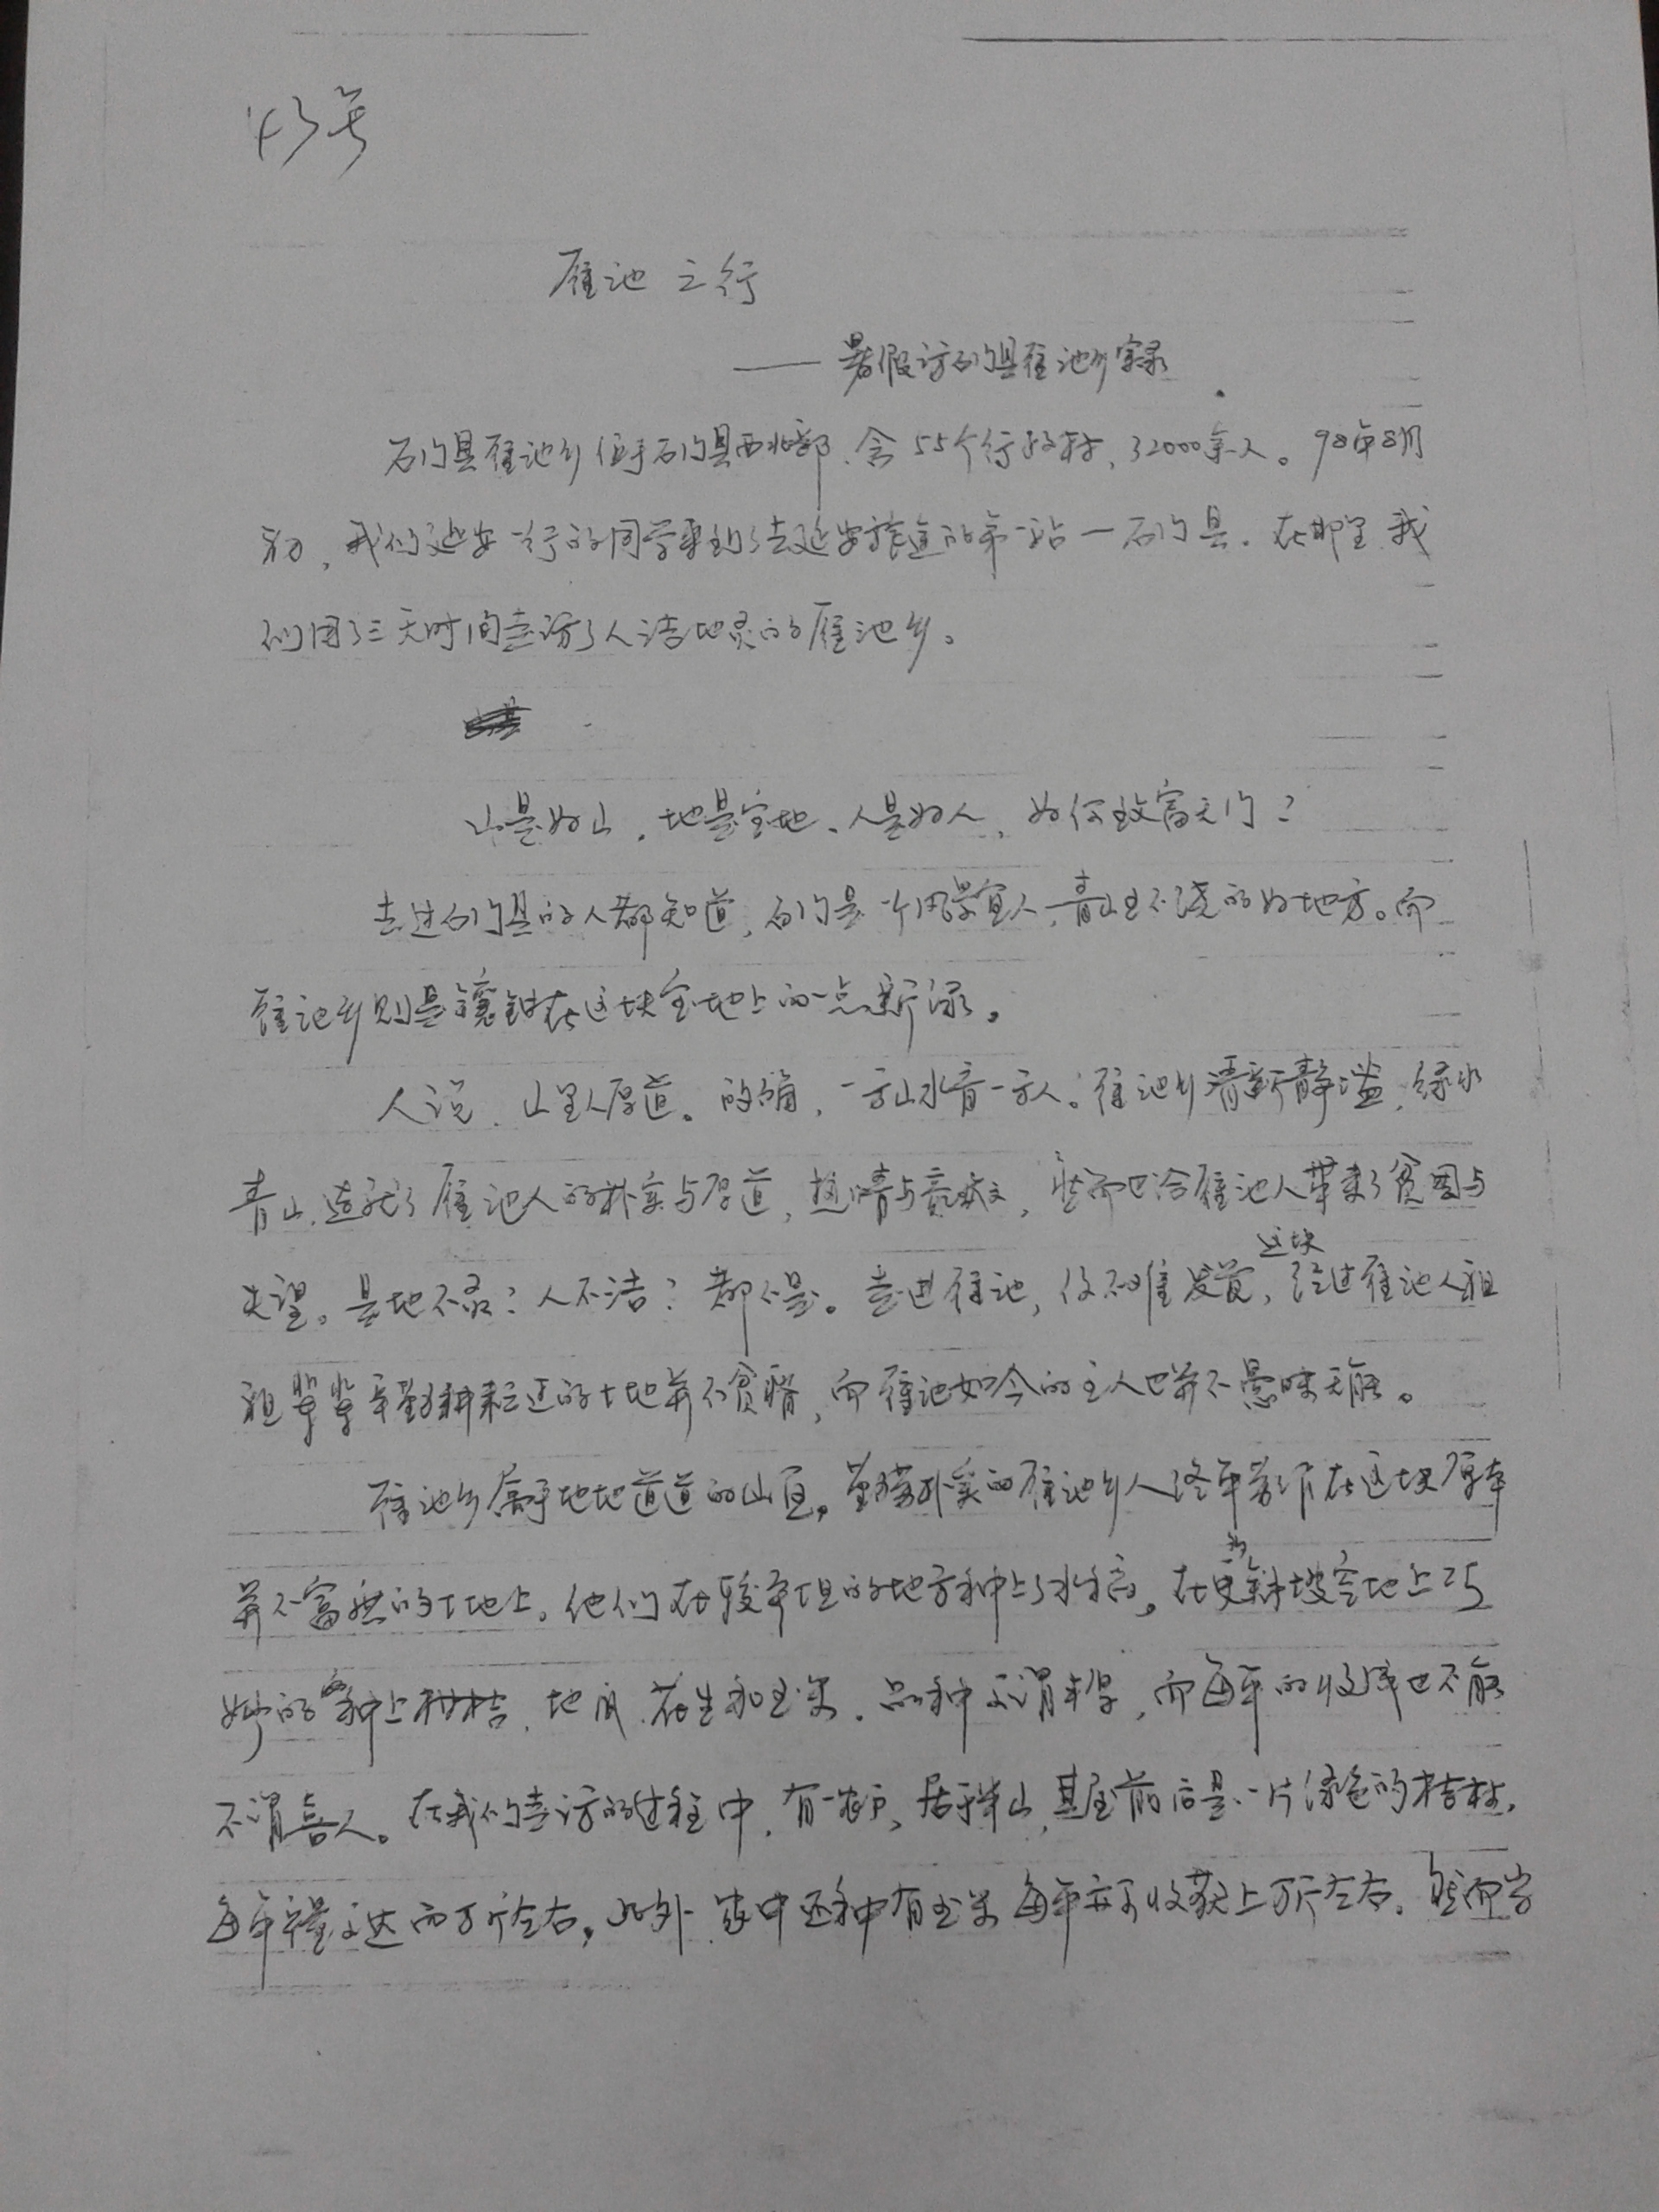 43号
雁池之行
——暑假访石门县雁池乡实录
石门县雁池乡位于石门县西北部、含55个行政村、32000余人。98年8月
初，我们延安一行的同学来到了去延安旅途的第一站—石门县。在那里我
们用了三天时间走访了人洁地灵的雁池乡。
山是好山，地是宝地、人是好人，如何致富无门？
去过石门县的人都知道，石门是一个风景宜人、青山环绕的好地方。而
雁池乡则是镶钳在这块宝地上的一点新绿。
人说，山里人厚道。的确，一方山水育一方人。雁池乡清新静谧，绿水
青山，造就了雁池人的朴实与厚道，热情与，然而也给雁池人带来了贫困与
失望。是地不灵？人不洁？都不是。走进雁池，你不难发觉，这块经过雁池人祖
祖辈辈辛勤耕耘过的土地并不贫瘠，而雁池如今的主人也并不愚昧无能。
雁池乡属于地地道道的山区。勤劳朴实的雁池乡人终年劳作在这块原本
并不富燃的土地上。他们在较平坦的地方种上了水稻。在更为斜坡空地上巧
妙的种上柑桔、地瓜、花生和玉米。品种可谓丰厚，而每年的收成也不能
不谓喜人。在我们走访的过程中，有一农户，居于半山，其屋前后是一片绿色的桔林，
每年产量可达两万斤左右。此外，家中还种有玉米每年亦可收获上万斤左右。然而当